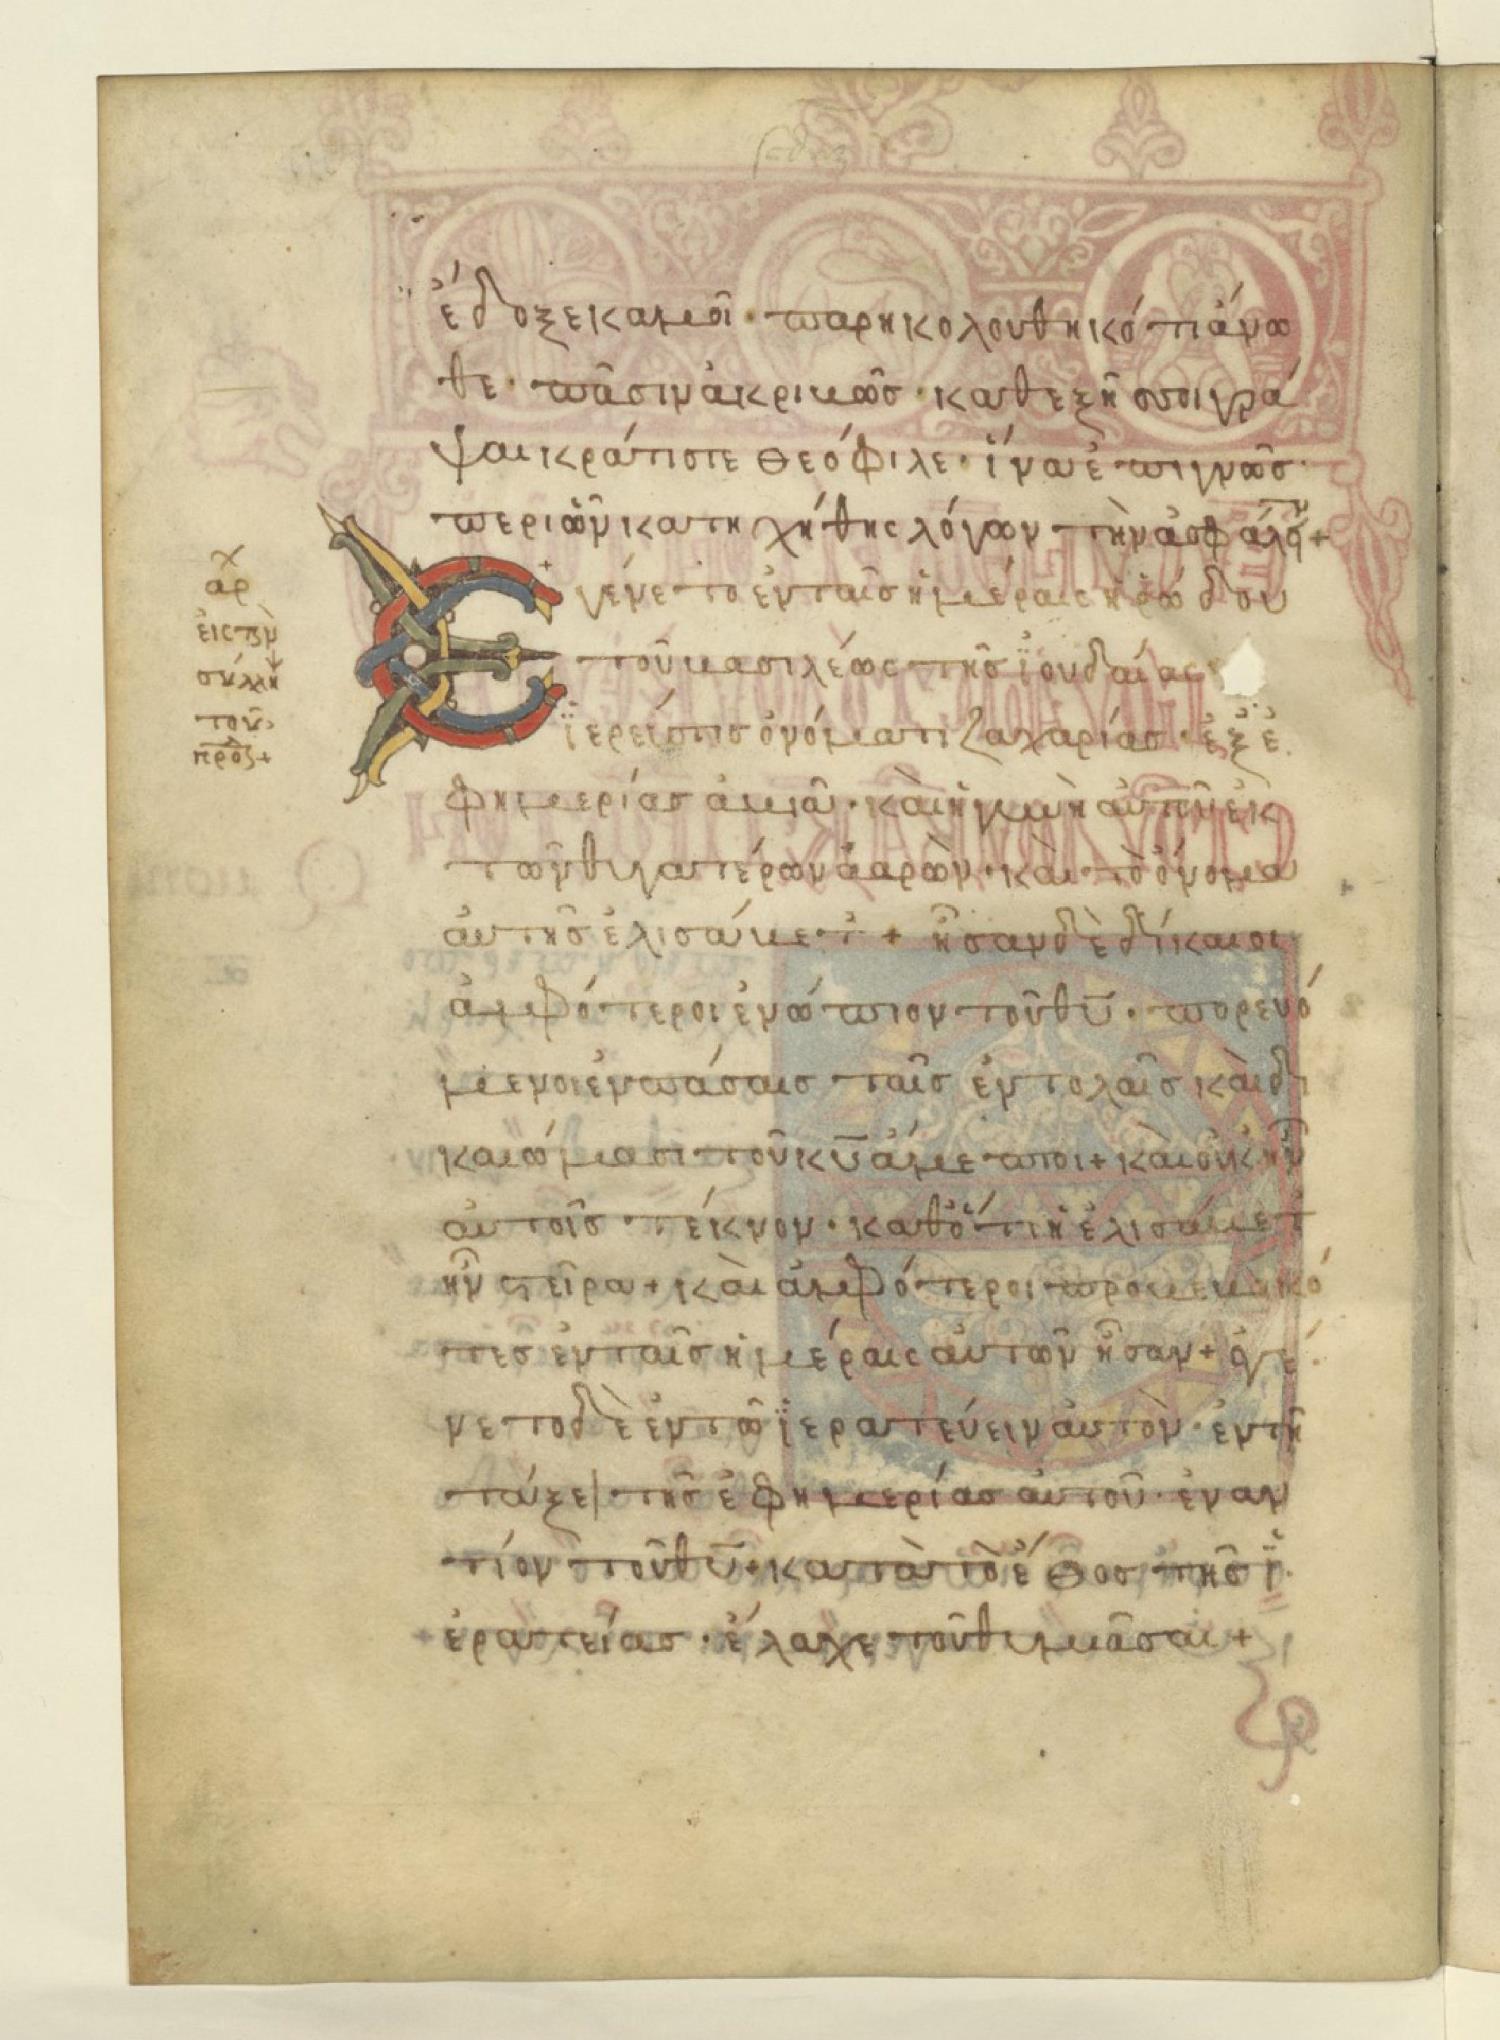 χ
αρ
εἰς τὴν
σύλλη
τοῦ
πρὸς+
ἐδοξε καμοῖ · παρηκολουθηκό τι ἄνω
θε · πᾶσιν ἀκριβῶς · καθεξῆς σοι γρά
ψαι κράτιστε Θεόφιλε · ἵνα ἐπιγνῶς ·
περὶ ὧν κατηχήθης λόγων τὴν ἀσφάλ +
Ἐγένετο ἐν ταῖς ἡμέραις ἡρώδου
τοῦ βασιλέως τῆς ἰουδαίας ·
ἱερεύς τις ὀνόματι Ζαχαρίας · ἐξ ἐ
φημερίας ἀβιᾶ · καὶ ἡ γυνὴ αὐτοῦ ἐκ
τῶν θυγατέρων ἀαρὼν · καὶ τὸ ὄνομα
αὐτῆς ἐλισάβετ + ἦσαν δὲ δίκαιοι
ἀμφότεροι ἐνώπιον τοῦ θυ · πορευό
μενοι ἐν πάσαις ταῖς ἐντολαῖς καὶ δι
καιώμασι τοῦ κυ ἄμεμποι + καὶ οὐκ ἦν
αὐτοῖς τέκνον · καθότι ἡ ἐλισάβετ
ἦν στεῖρα + καὶ ἀμφότεροι προβεβηκό
τες ἐν ταῖς ἡμέραις αὐτῶν ἦσαν + ἐγέ
νετο δὲ ἐν τῷ ἱερατεύειν αὐτὸν · ἐν τῆ
τάξει τῆς ἐφημερίας αὐτοῦ · ἐναν
τίον τοῦ θυ · κατὰ τὸ ἔθος τῆς ἱ
ἐρατείας · ἔλαχε τοῦ θυμιᾶσαι +